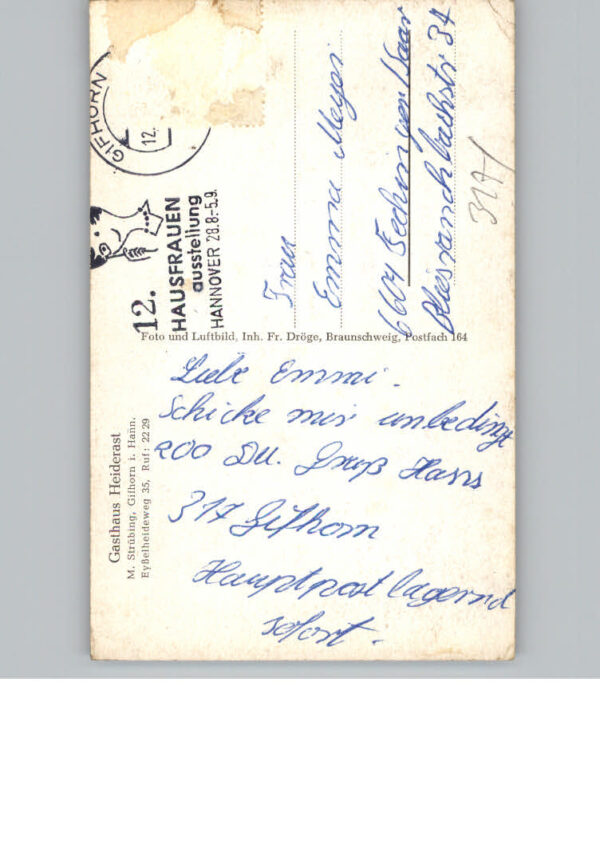 GIFHORN
12.
12.
HAUSFRAUEN
ausstellung
HANNOVER 28.8.-5.9.
Frau
Emma Meyer
6604 Fechingen/Saar
Bliesranschbachstr 34
3171
Foto und Luftbild, Inh. Fr. Dröge, Braunschweig, Postfach 164
Gasthaus Heiderast
M. Strübing, Gifhorn i. Hann.
Eyßelheideweg 35, Ruf: 22 29
Liebe Emmi.
Schicke mir unbedingt
200 DM. Gruß Hans
317 Gifhorn
Hauptpostlagernd
sofort.